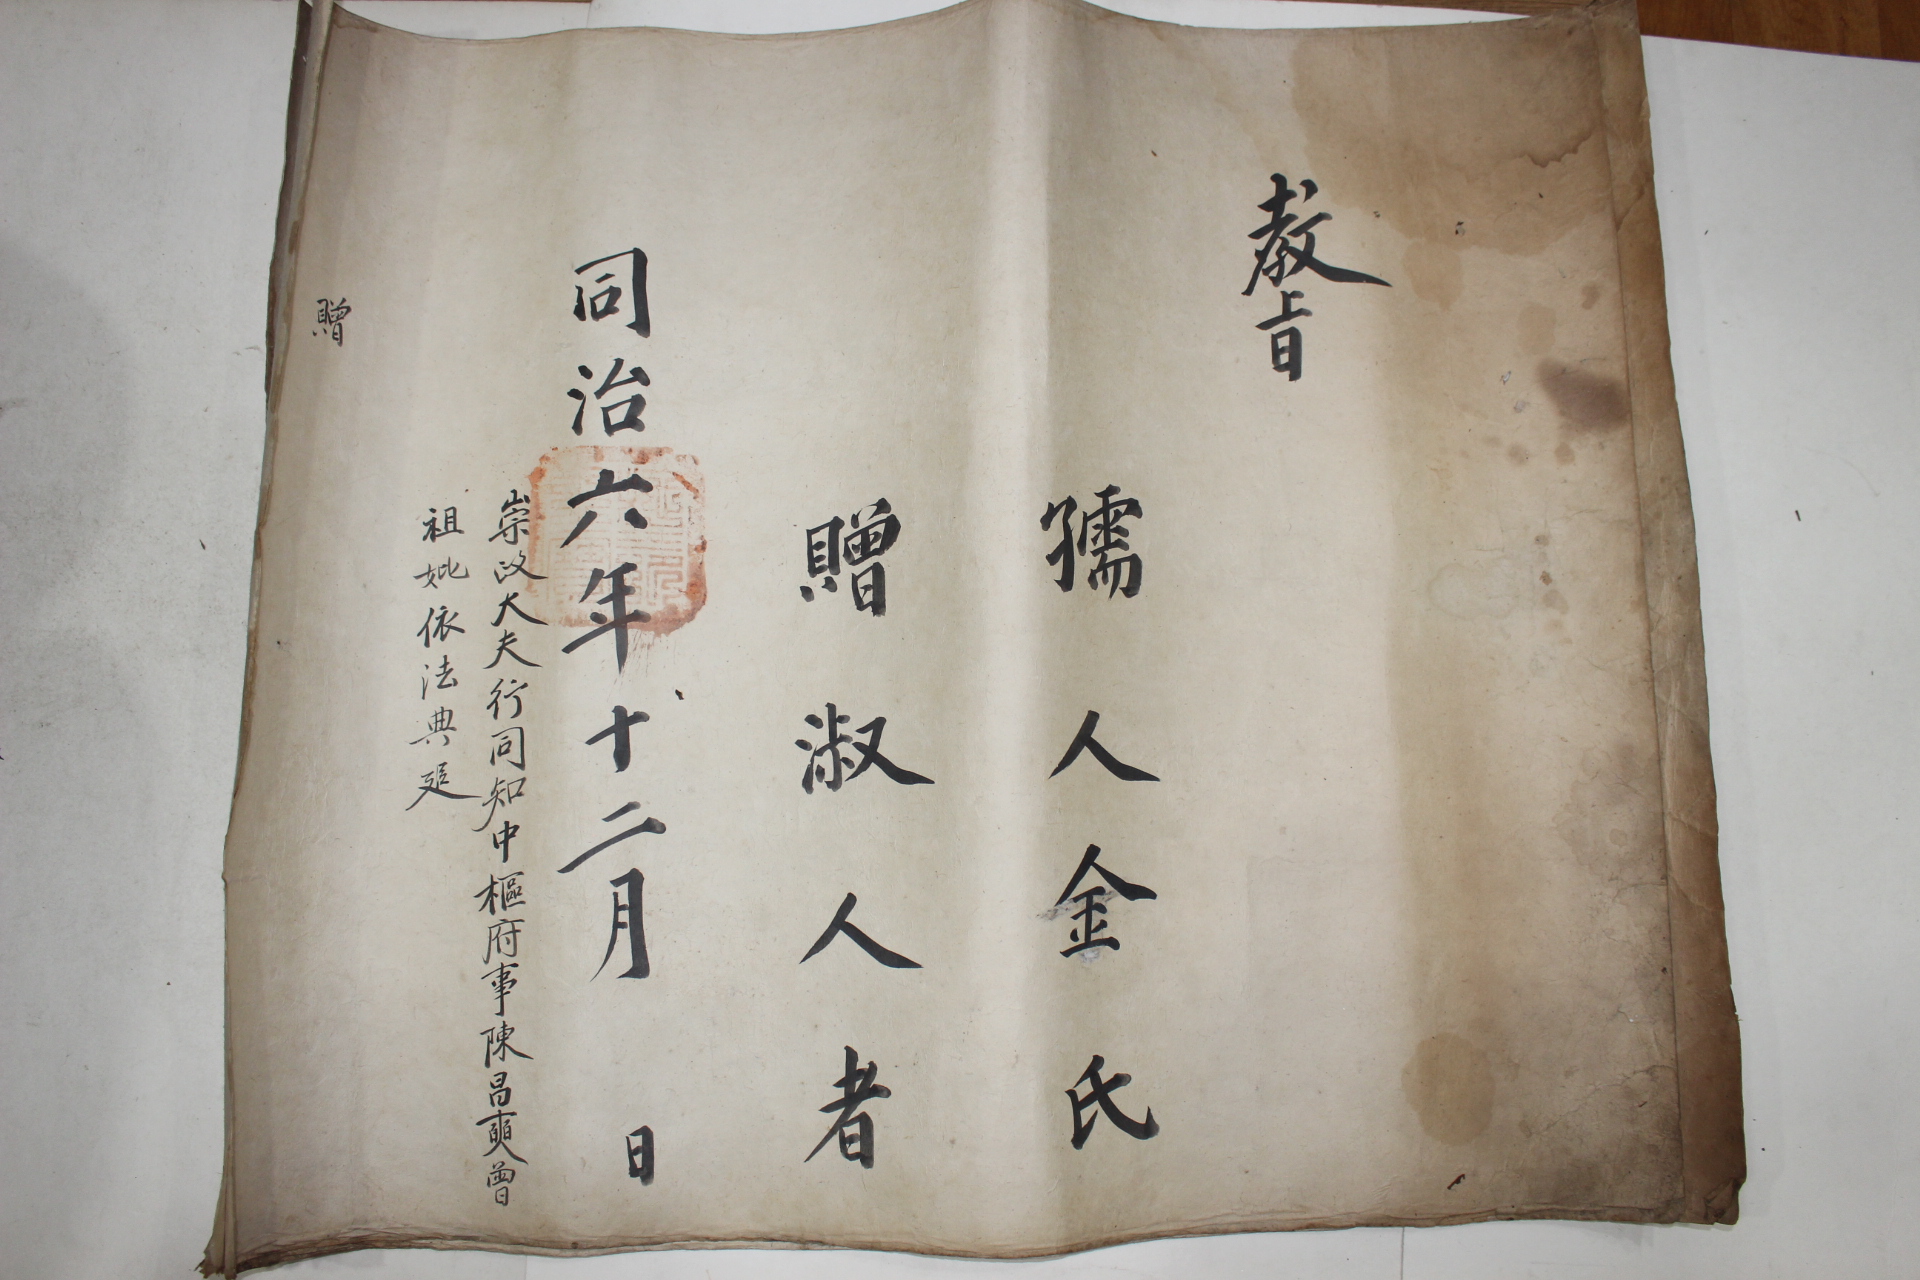 敎旨
孺人金氏
贈淑人者
同治六年十二月 日
崇政大夫行同知中樞府事陳昌奭曾
祖妣依法典追
贈